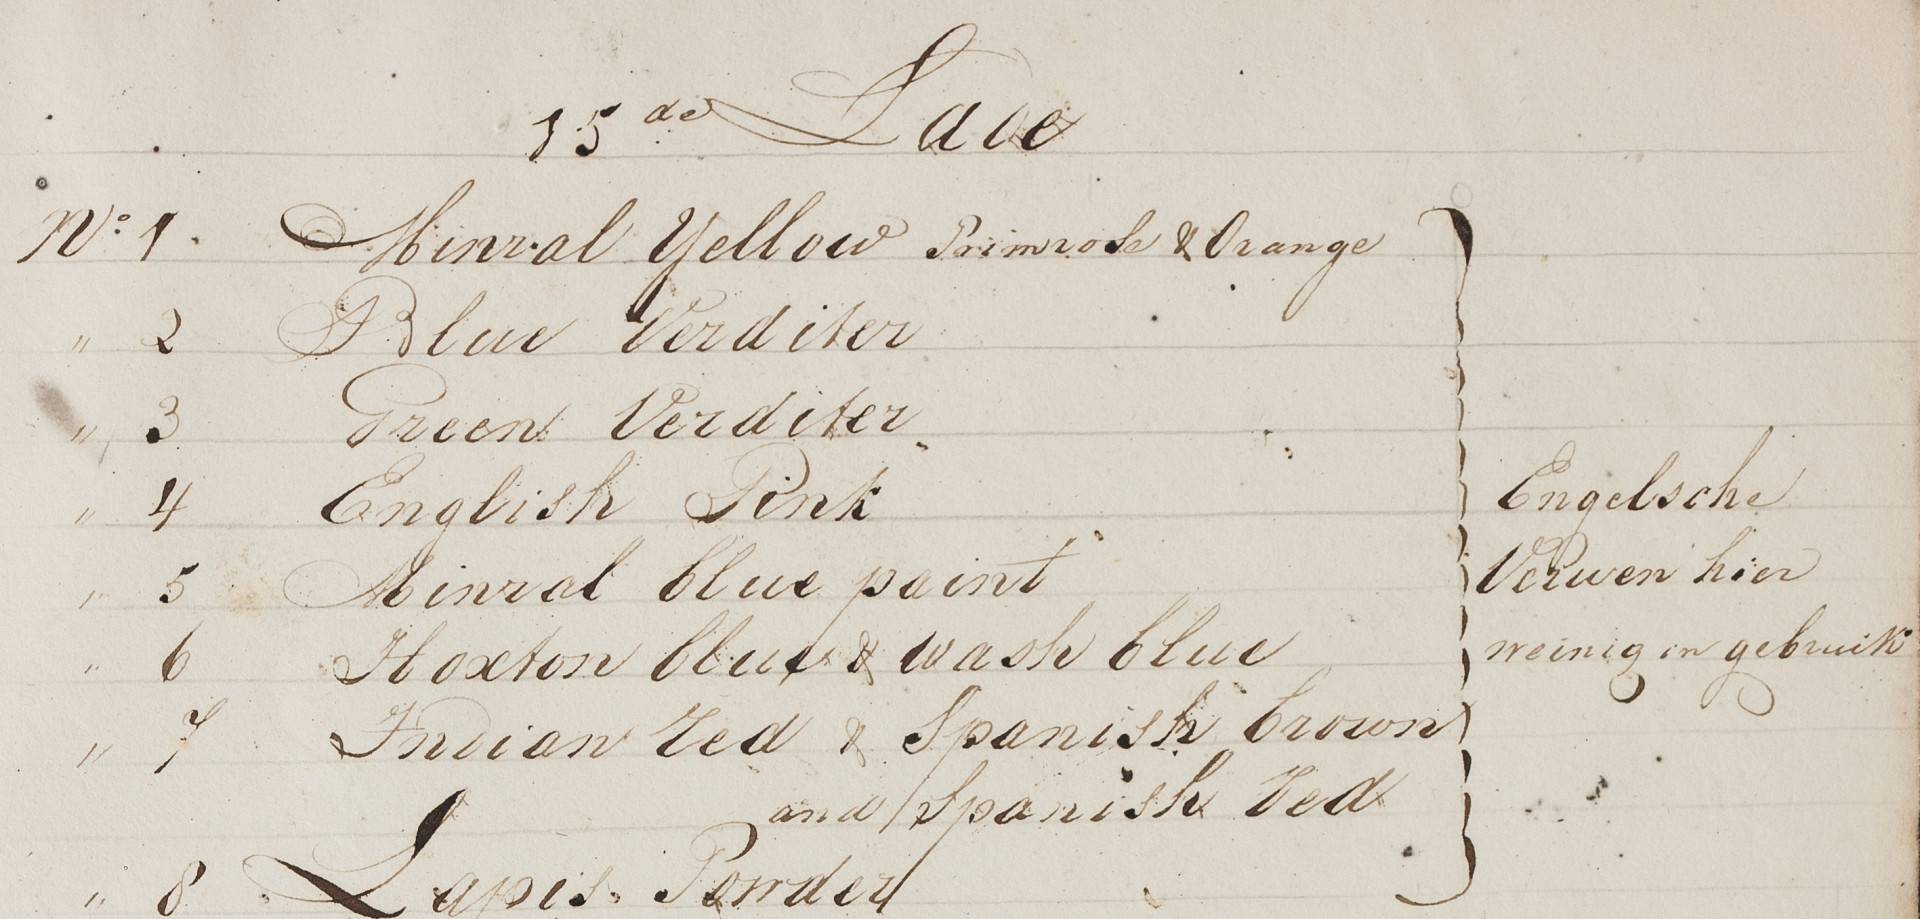 15de Lade
No. 1. Minral Yellow Primrose & Orange
" 2 Blue Verditer
" 3 Green Verditer
" 4 English Pink
" 5 Minral blue paint
" 6 Hoxton blue & wash blue
" 7 Indian Red & Spanish brown
and Spanish Red
" 8 Lapis Powder
Engelsche
Verwen hier
weinig in gebruik